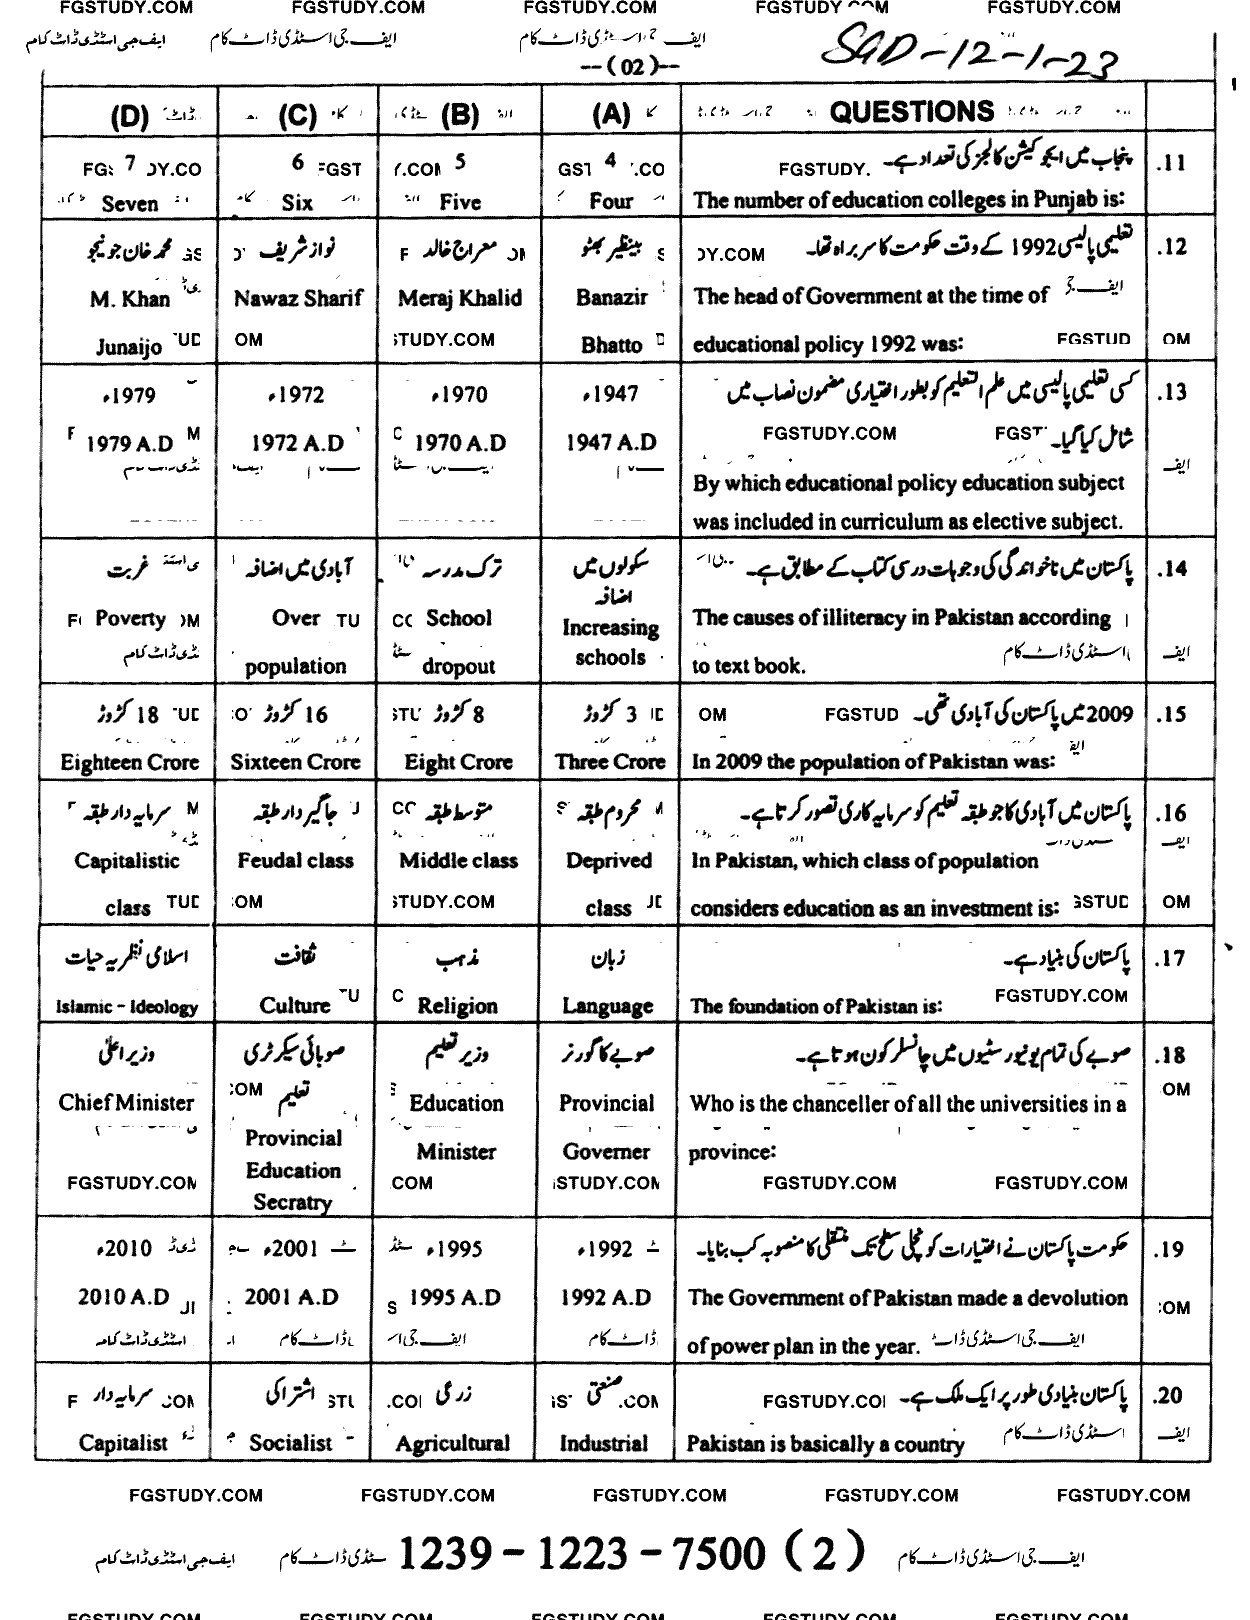 FGSTUDY.COM FGSTUDY.COM FGSTUDY.COM FGSTUDY.COM FGSTUDY.COM
ایف جی اسٹڈی ڈاٹ کام ایف جی اسٹڈی ڈاٹ کام
SGD-12-1-23
--(02)--
(D) (C) (B) (A) QUESTIONS
7 6 5 4 پنجاب میں ایجوکیشن کالجز کی تعداد ہے۔ .11
Seven Six Five Four The number of education colleges in Punjab is:
محمد خان جونیجو نواز شریف معراج خالد بینظیر بھٹو تعلیمی پالیسی 1992 کے وقت حکومت کا سربراہ تھا۔ .12
M. Khan Nawaz Sharif Meraj Khalid Banazir The head of Government at the time of
Junaijo Bhatto educational policy 1992 was:
1979ء 1972ء 1970ء 1947ء کسی تعلیمی پالیسی میں علم التعلیم کو بطور اختیاری مضمون نصاب میں .13
1979 A.D 1972 A.D 1970 A.D 1947 A.D شامل کیا گیا۔
FGSTUDY.COM
By which educational policy education subject
was included in curriculum as elective subject.
غربت آبادی میں اضافہ ترک مدرسہ سکولوں میں اضافہ پاکستان میں ناخواندگی کی وجوہات درسی کتاب کے مطابق ہے۔ .14
Poverty Over School Increasing The causes of illiteracy in Pakistan according
population dropout schools to text book.
18 کڑوڑ 16 کڑوڑ 8 کڑوڑ 3 کڑوڑ 2009 میں پاکستان کی آبادی تھی۔ .15
Eighteen Crore Sixteen Crore Eight Crore Three Crore In 2009 the population of Pakistan was:
سرمایہ دار طبقہ جاگیر دار طبقہ متوسط طبقہ محروم طبقہ پاکستان میں آبادی کا جو طبقہ تعلیم کو سرمایہ کاری تصور کرتا ہے۔ .16
Capitalistic Feudal class Middle class Deprived In Pakistan, which class of population
class class considers education as an investment is:
اسلامی نظریہ حیات ثقافت مذہب زبان پاکستان کی بنیاد ہے۔ .17
Islamic – Ideology Culture Religion Language The foundation of Pakistan is: FGSTUDY.COM
وزیر اعلیٰ صوبائی سیکرٹری تعلیم وزیر تعلیم صوبے کا گورنر صوبے کی تمام یونیورسٹیوں میں چانسلر کون ہوتا ہے۔ .18
Chief Minister Provincial Education Provincial Who is the chancellor of all the universities in a
Education Minister Governer province:
Secratry FGSTUDY.COM FGSTUDY.COM
2010ء 2001ء 1995ء 1992ء حکومت پاکستان نے اختیارات کو نچلی سطح تک منتقلی کا منصوبہ کب بنایا۔ .19
2010 A.D 2001 A.D 1995 A.D 1992 A.D The Government of Pakistan made a devolution
of power plan in the year.
سرمایہ دار اشتراکی زرعی صنعتی پاکستان بنیادی طور پر ایک ملک ہے۔ .20
Capitalist Socialist Agricultural Industrial Pakistan is basically a country
FGSTUDY.COM FGSTUDY.COM FGSTUDY.COM FGSTUDY.COM FGSTUDY.COM
1239 – 1223 – 7500 ( 2 )
ایف جی اسٹڈی ڈاٹ کام ایف جی اسٹڈی ڈاٹ کام
FGSTUDY.COM FGSTUDY.COM FGSTUDY.COM FGSTUDY.COM FGSTUDY.COM